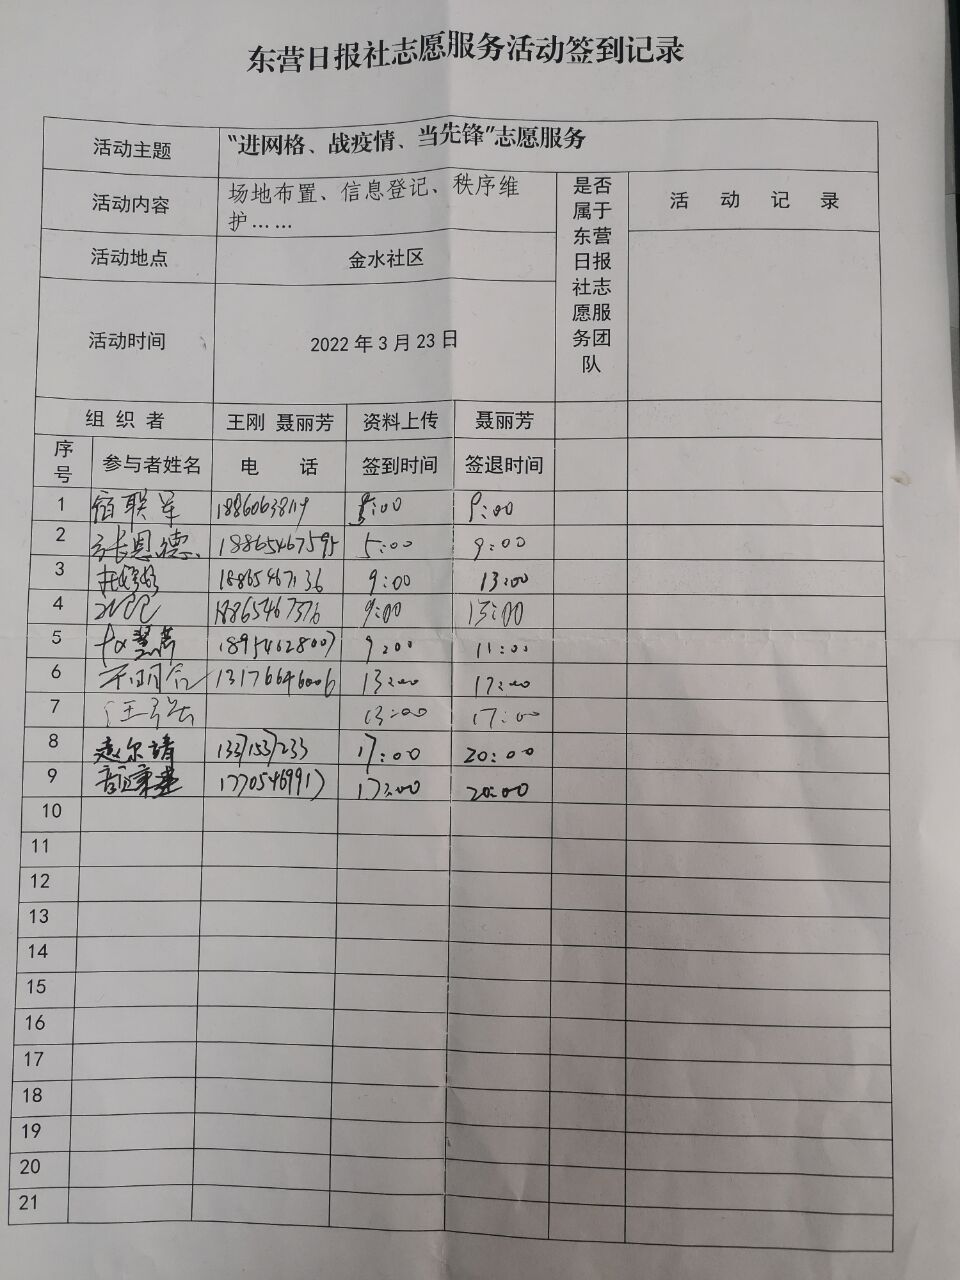 东营日报社志愿服务活动签到记录
活动主题 “进网格、战疫情、当先锋”志愿服务
活动内容 场地布置、信息登记、秩序维护…… 是否属于东营日报社志愿服务团队 活 动 记 录
活动地点 金水社区
活动时间 2022年3月23日
组 织 者 王刚 聂丽芳 资料上传 聂丽芳
序号 参与者姓名 电 话 签到时间 签退时间
1 宿联军 9:00
2 张恩德 18865467595 5:00 9:00
3 9:00 13:00
4 18865467376 9:00 13:00
5 18954628007 9:00 11:00
6 13176646006 13:00 17:00
7 13:00 17:00
8 13371537233 17:00 20:00
9 17705469917 17:00 20:00
10
11
12
13
14
15
16
17
18
19
20
21